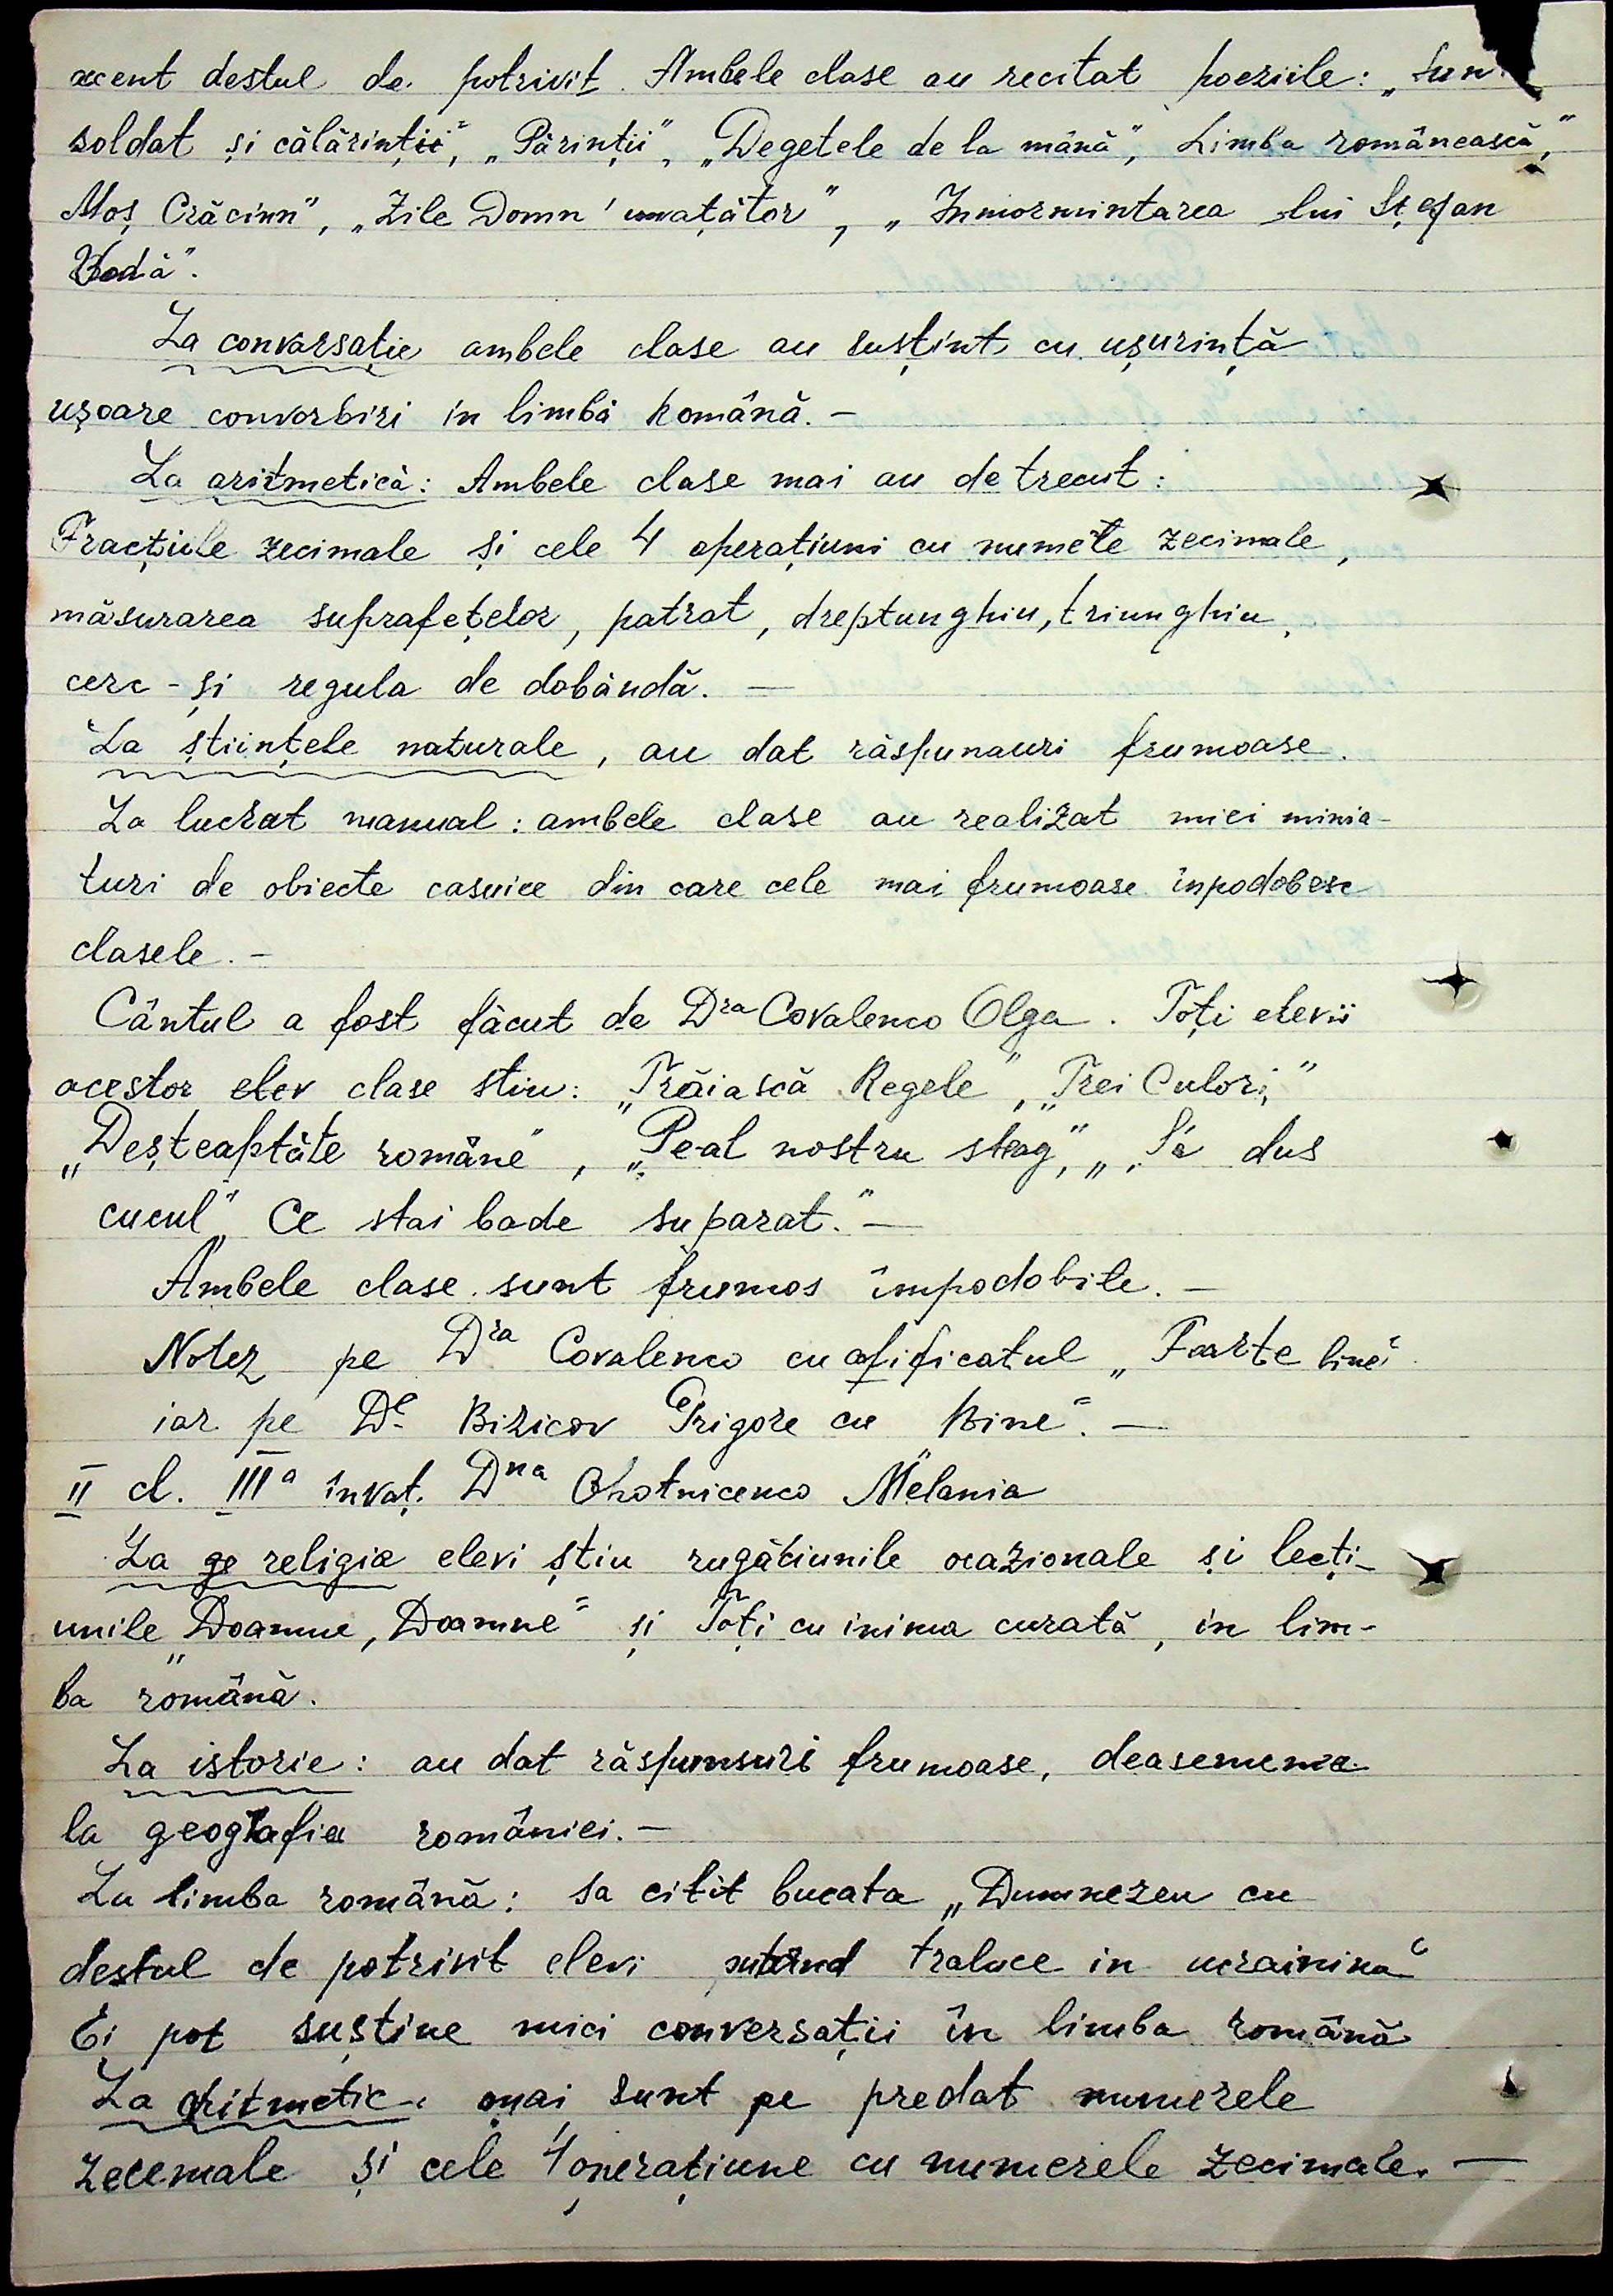 accent destul de potrivit. Ambele clase au recitat poeziile: „Sun
soldat și călărințíi", „Părinții", „Degetele de la mână", Limba românească",
Moș Crăciun", „Zile Domn' învațător", „Inmormintarea lui Ștefan
Vodă".
La conversație ambele clase au susțint cu ușurință
ușoare convorbiri in limbă Română. –
La aritmetică: Ambele clase mai au de trecut:
Fracțiile zecimale și cele 4 operațiuni cu numete zecimale,
măsurarea suprafețelor, patrat, dreptunghiu, triunghiu,
cerc - și regula de dobândă. –
La științele naturale, au dat răspunauri frumoase.
La lucrat manual: ambele clase au realizat mici minia-
turi de obiecte casnice din care cele mai frumoase inpodobesc
clasele. –
Cântul a fost făcut de Dra Covalenco Olga. Toți elevii
acestor elev clase stiu: „Trăiască Regele", „Trei Culori,"
„Deșteaptăte române", „Pe-al nostru steag", „Să dus
cucul" „Ce stai bade suparat." –
Ambele clase sunt frumos împodobite. –
Notez pe Dra Covalenco cu calificatul „Foarte bine"
iar pe Dl Biricov Grigore cu Bine". –
II cl. IIIa învaț. Dna Ohotnicenco Melania
La ge religie elevi știu rugăciunile ocazionale și lecți-
unile „Doamne, Doamne" și Toți cu inima curată, in lim-
ba română.
La istorie: au dat răspunsuri frumoase, deasemenea
la geografia româniei. –
La limba română: sa citit bucata „Dumnezeu cu
destul de potrivit elevi putând traluce in ucrainină
Ei pot susține mici conversații în limba română
La aritmetic. mai sunt pe predat numerele
zecemale și cele 4 operațiune cu numerele zecimale. –